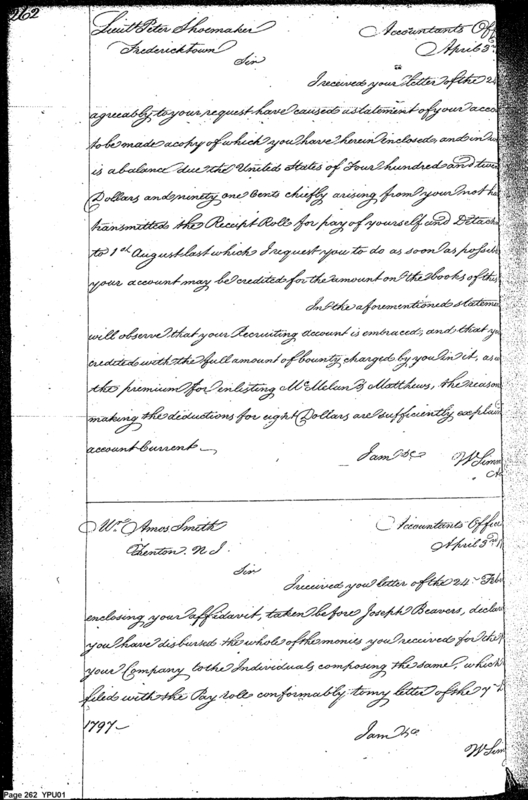 262
Lieutt Peter Shoemaker Accountants Off
Fredericktown April 3d
Sir
I received your letter of the 24
agreeably to your request have caused a statement of your acco
to be made a copy of which you have herein enclosed, and in
is a balance due the United States of Four hundred and twen
Dollars and ninety one Cents chiefly arising from your not ha
transmitted the Receipt Roll for pay of yourself and Detach
to 1st August last which I request you to do as soon as possible
your account may be credited for the amount on the books of this
In the aforementioned stateme
will observe that your Recruiting account is embraced, and that yo
credited with the full amount of bounty charged by you in it, as
the premium for enlisting McMelun & Matthews, the reason
making the deductions for eight Dollars are sufficiently explain
account Current
I am &c W Simm
Ac
Amos Smith Accountants Office
Trenton N J April 3rd 1
Sir
I received you letter of the 24 Feb
enclosing your affidavit, taken before Joseph Beavers, declar
you have disbursed the whole of the monies you received for the
your Company to the Individuals composing the same, which
filed with the Pay roll conformably to my letter of the 7th
1797
I am &c
W Sim
Page 262 YPU01